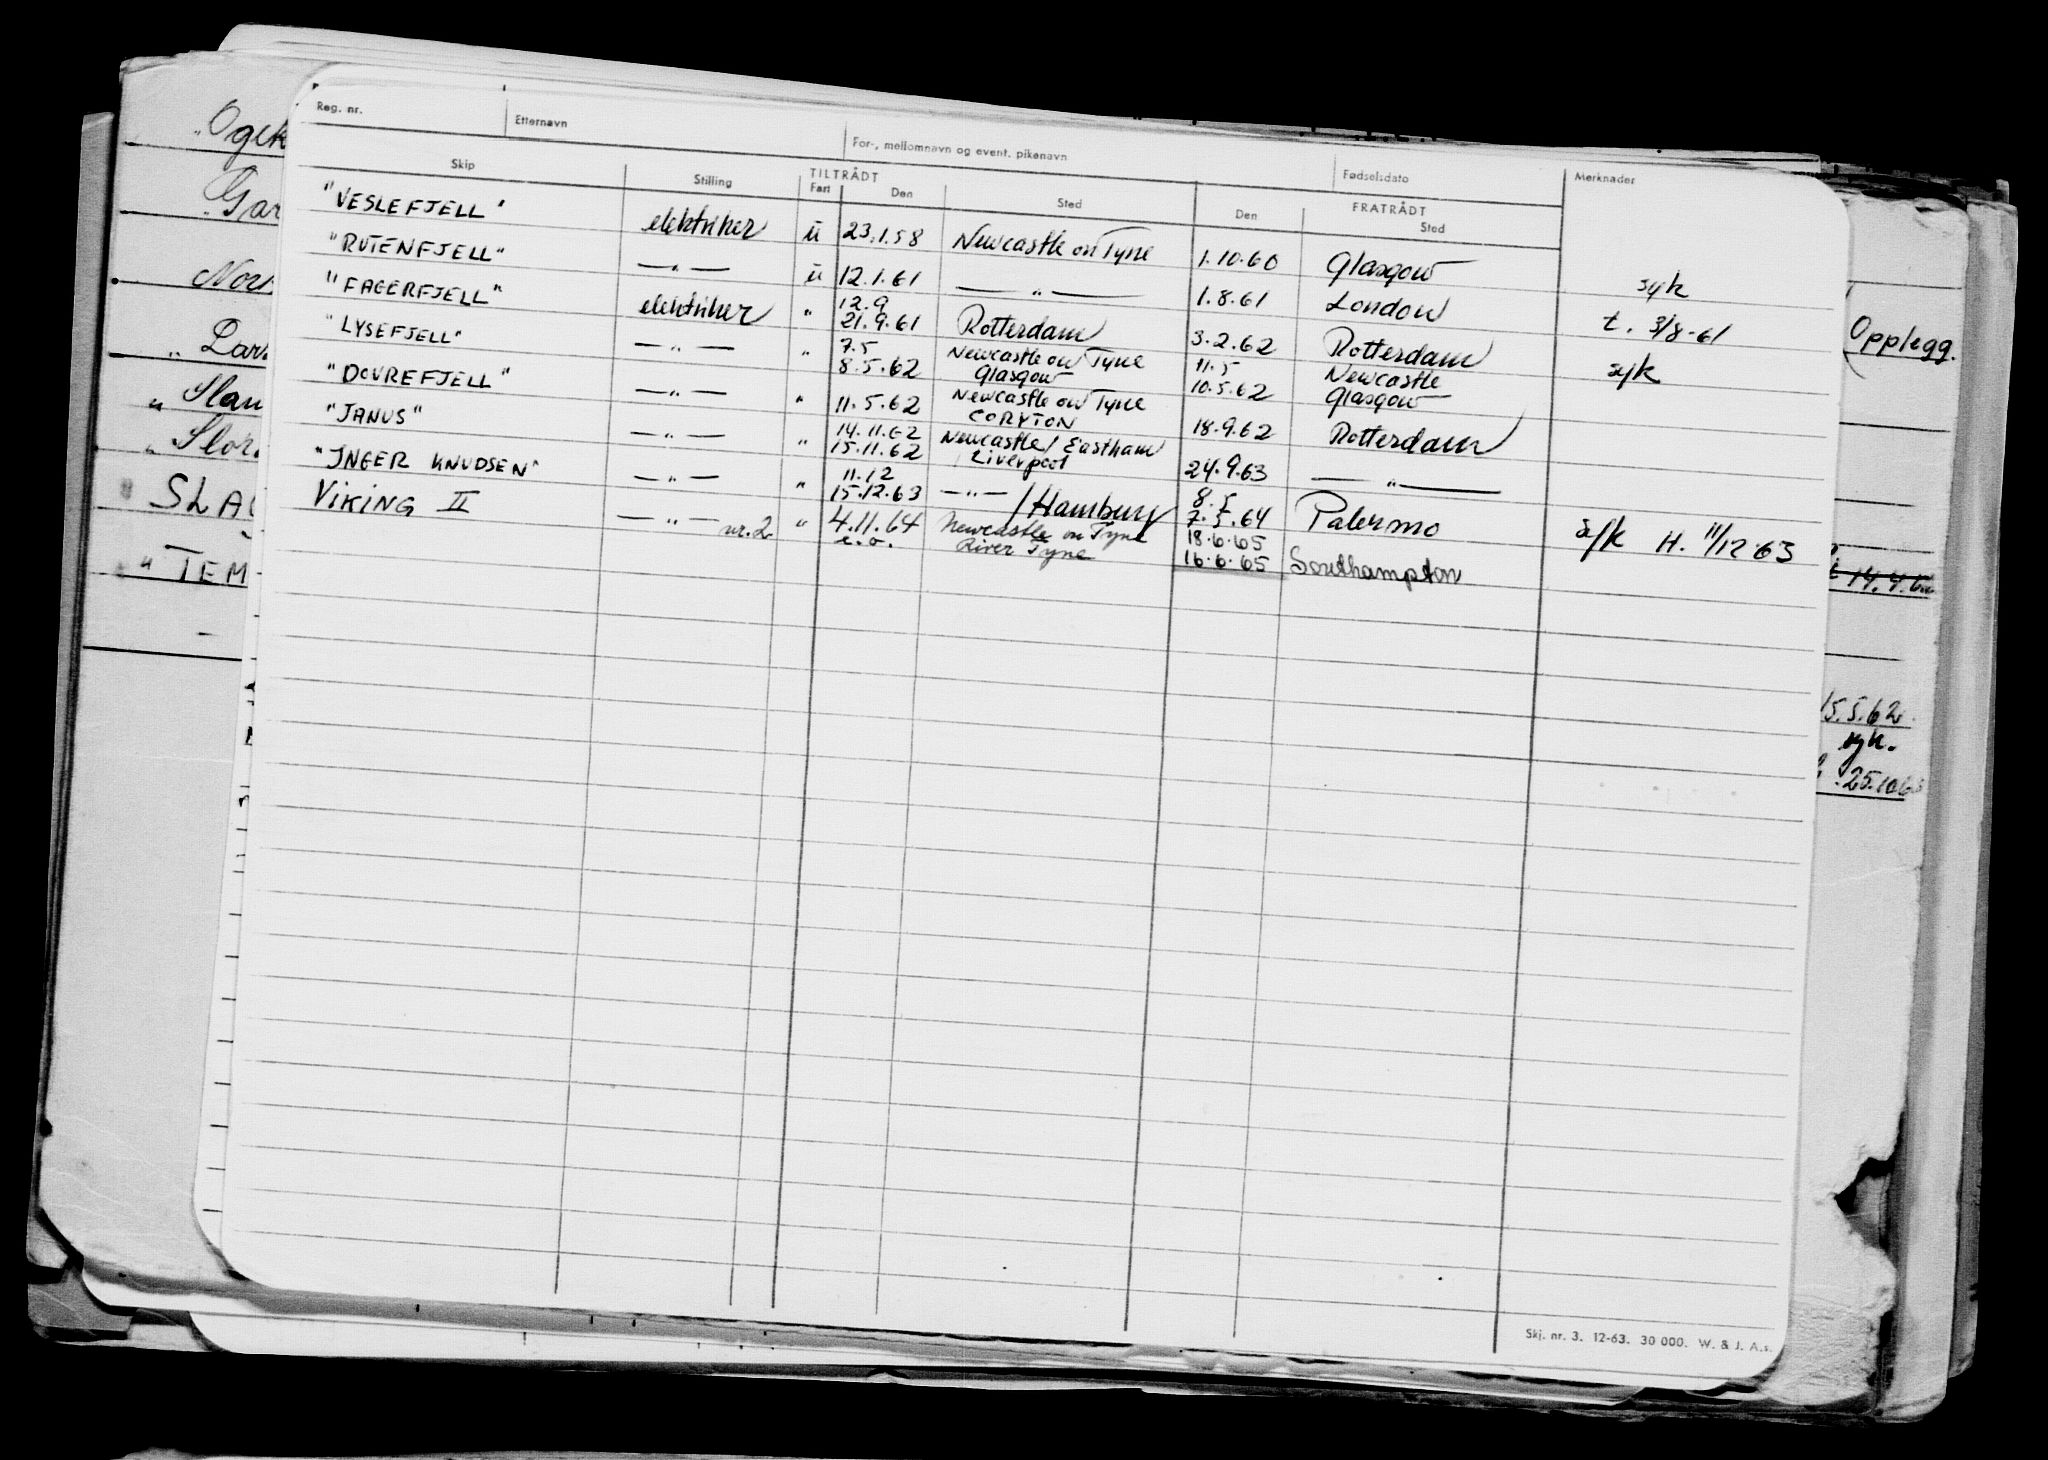 Reg. nr. Etternavn For-, mellomnavn og event. pikenavn Fødselsdato Merknader
Skip Stilling TILTRÅDT Fart Den Sted FRATRÅDT Den Sted
"VESLEFJELL" elektriker ü 23.1.58 Newcastle on Tyne 1.10.60 Glasgow syk
"RUTENFJELL" —"— ü 12.1.61 —"— 1.8.61 London t. 3/8-61
"FAGERFJELL" elektriker " 12.9 21.9.61 Rotterdam 3.2.62 Rotterdam syk
"LYSEFJELL" —"— " 7.5 8.5.62 Newcastle on Tyne Glasgow 11.5 10.5.62 Newcastle Glasgow
"DOVREFJELL" —"— " 11.5.62 Newcastle on Tyne CORYTON 18.9.62 Rotterdam
"JANUS" —"— " 14.11.62 15.11.62 Newcastle / Eastham Liverpool 24.9.63 —"—
"INGER KNUDSEN" —"— " 11.12 15.12.63 —"— / Hamburg 8.5 7.5.64 Palermo s/k H. 11/12.63
VIKING II —"— nr. 2 " 4.11.64 e.o. Newcastle on Tyne River Tyne 18.6.65 16.6.65 Southampton
Skj. nr. 3. 12-63. 30 000. W. & J. A.s.
"Ogek
Gar
Nor
" Lar
" Slan
" Slor
SLA
" TEM
Opplegg.
14.4.6
15.5.62.
syk.
25.10.6